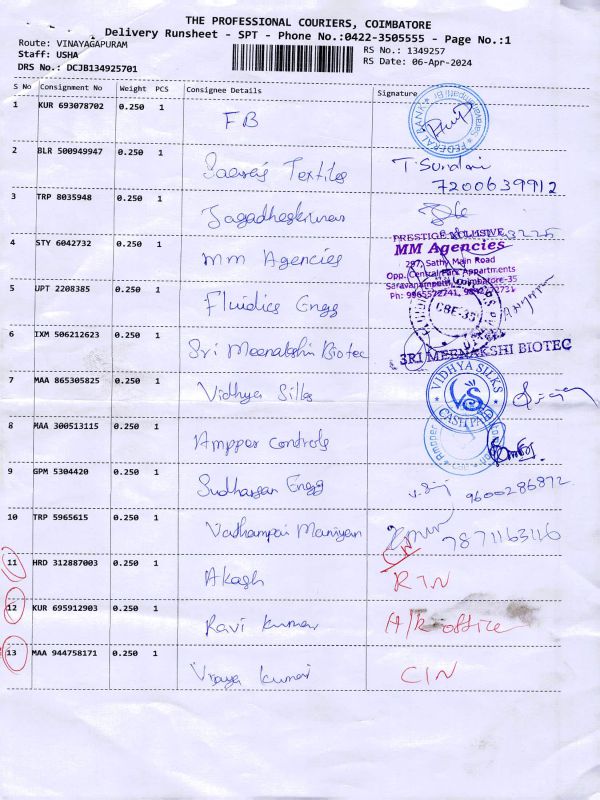 THE PROFESSIONAL COURIERS, COIMBATORE
Delivery Runsheet - SPT - Phone No.:0422-3505555 - Page No.:1
Route: VINAYAGAPURAM
Staff: USHA
DRS No.: DCJB134925701
RS No.: 1349257
RS Date: 06-Apr-2024
S No Consignment No Weight PCS Consignee Details Signature
1 KUR 693078702 0.250 1 FB
FEDERAL BANK
2 BLR 500949947 0.250 1 Textiles
7200639912
3 TRP 8035948 0.250 1
4 STY 6042732 0.250 1 MM Agencies
PRESTIGE XCLUSIVE
MM Agencies
297, Sathy Main Road
Opp. Central Park Appartments
Saravanampatti, Coimbatore-35
5 UPT 2208385 0.250 1 Fluidics Engg
CBE-35
6 IXM 506212623 0.250 1 Sri Meenakshi Biotec
SRI MEENAKSHI BIOTEC
7 MAA 865305825 0.250 1 Vidhya Silks
VIDHYA SILKS
VS
CASH PAID
8 MAA 300513115 0.250 1 Ampper Controls
9 GPM 5304420 0.250 1 Sudharsan Engg
9600286872
10 TRP 5965615 0.250 1 Maniyan
7871163116
11 HRD 312887003 0.250 1 Akash RTN
12 KUR 695912903 0.250 1 Ravi Kumar A/R office
13 MAA 944758171 0.250 1 Vijaya Kumar CIN